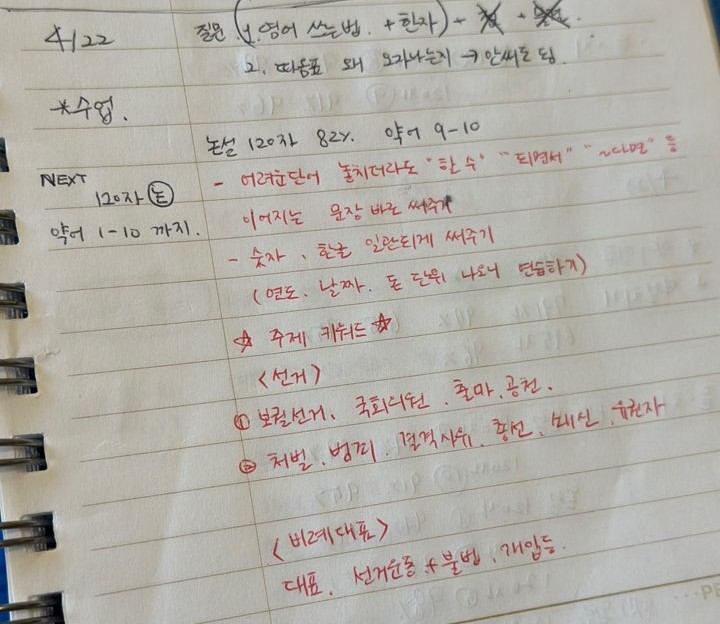 4/22
질문 (1. 영어 쓰는법. + 한자) +
2. 따옴표 왜 오자나는지 → 안써도 됨.
*수업.
논설 120자 82%. 약어 9-10
NEXT
120자 논
약어 1-10 까지.
- 어려운단어 놓치더라도 "한 수" "되면서" "~다면" 등
이어지는 문장 바로 써주기
- 숫자, 한글 일관되게 써주기
(연도, 날짜, 돈 단위 나오니 연습하기)
☆ 주제 키워드 ☆
<선거>
① 보궐선거, 국회의원, 출마, 공천.
② 처벌, 범죄, 결격사유, 총선, 쇄신, 유권자
<비례대표>
대표, 선거운동 + 불법, 개입등.